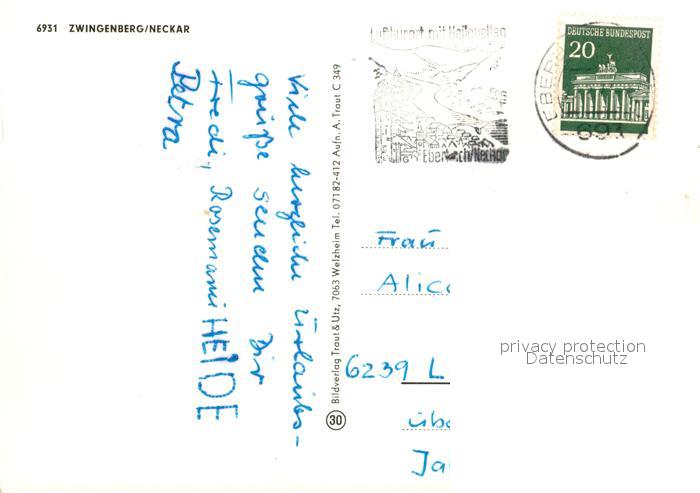 6931 ZWINGENBERG/NECKAR
Luftkurort mit Heilquellen
Eberbach/Neckar
DEUTSCHE BUNDESPOST
20
EBER
693
Viele herzliche Urlaubs-
grüße senden Dir
Fredi, Rosemarie HEIDE
Petra
Bildverlag Traut & Utz, 7063 Welzheim Tel. 07182-412 Aufn. A. Traut C 349
30
Frau
Alic
6239 L
übe
Ja
privacy protection
Datenschutz